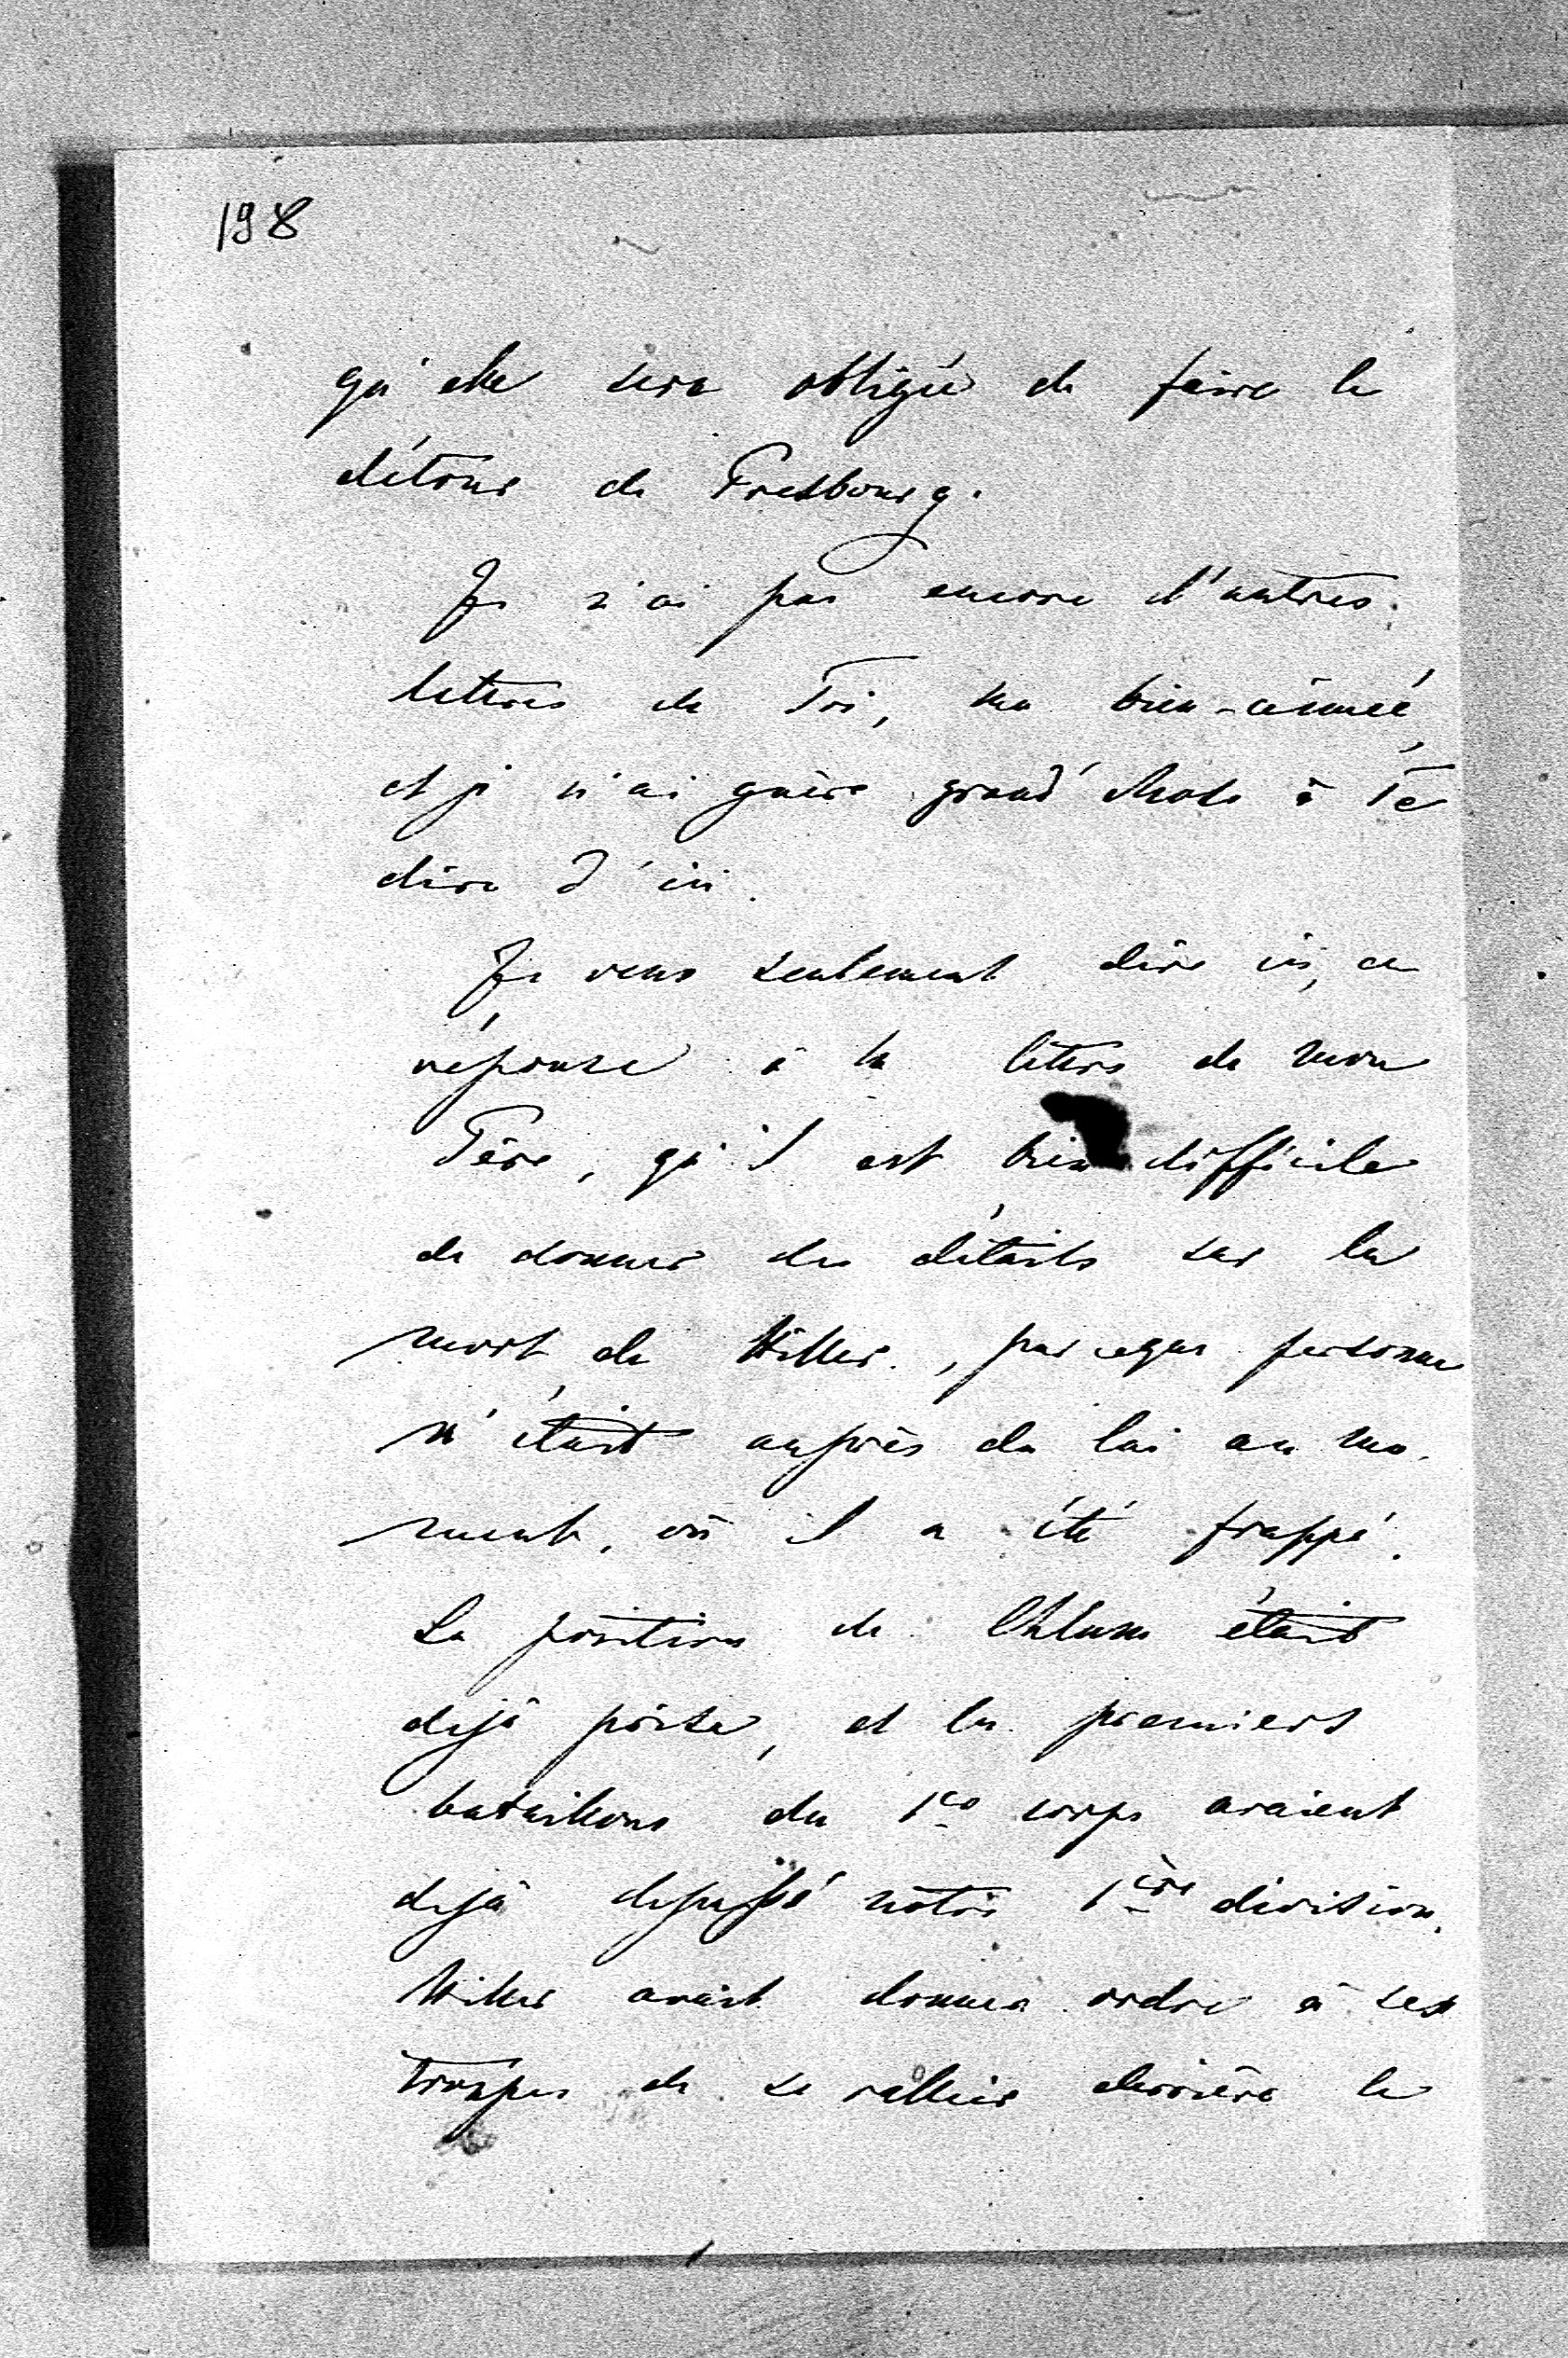 198
qu'elle sera obligée de faire le
détour de Presbourg.
Je n'ai pas encore d'autres
lettres de Toi, ma bien-aimée,
et je n'ai guère grand' chose à Te
dire d'ici.
Je veux seulement dire ici, en
réponse à la lettre de mon
Père, qu'il est bien difficile
de donner des détails sur la
mort de Hiller, parceque personne
n'était auprès de lui au mo-
ment, où il a été frappé.
La position de Chlum était
dejà prise, et les premiers
bataillons du 1er corps avaient
dejà depassé notre 1ère division.
Hiller avait donné ordre à ses
troupes de se rallier derrière le